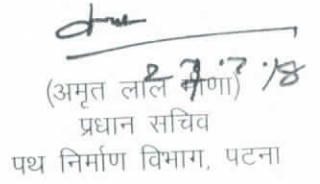 27.7.18
(अमृत लाल मीणा)
प्रधान सचिव
पथ निर्माण विभाग, पटना